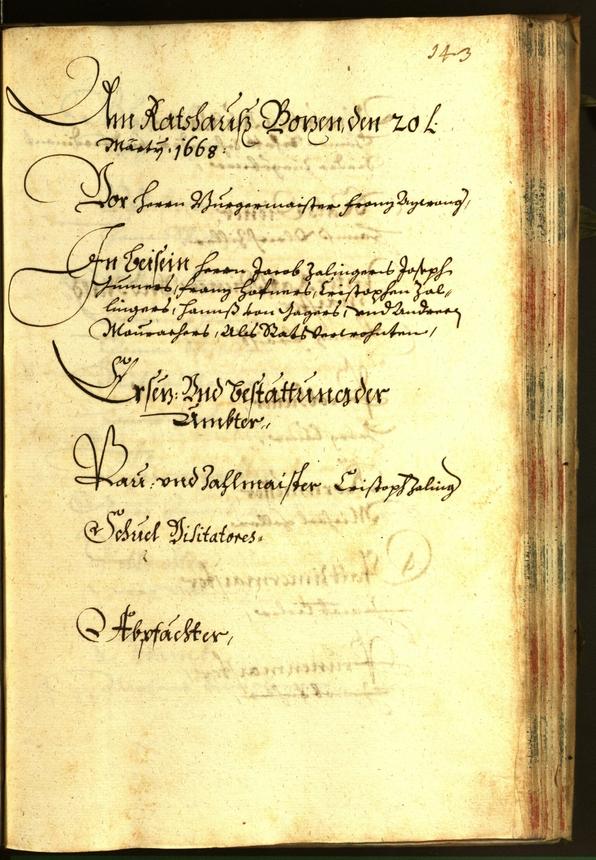 143
Am Ratshauß Bozen, den 20 t:
Marty. 1668:
Vor Herrn Burgermaister Franz
In beisein Herrn Jacob Zalingers Joseph
Franz Hafners, Cristophen Zal-
lingers, Hannß von Jagers, und Andreen
Mourachers, Als Ratsverwohnten,
Ersez: Und bestattung der
Ämbter,
Bau: und Zahlmaister Cristoph Zaling
Schuel Visitatores.
Abpfächter,